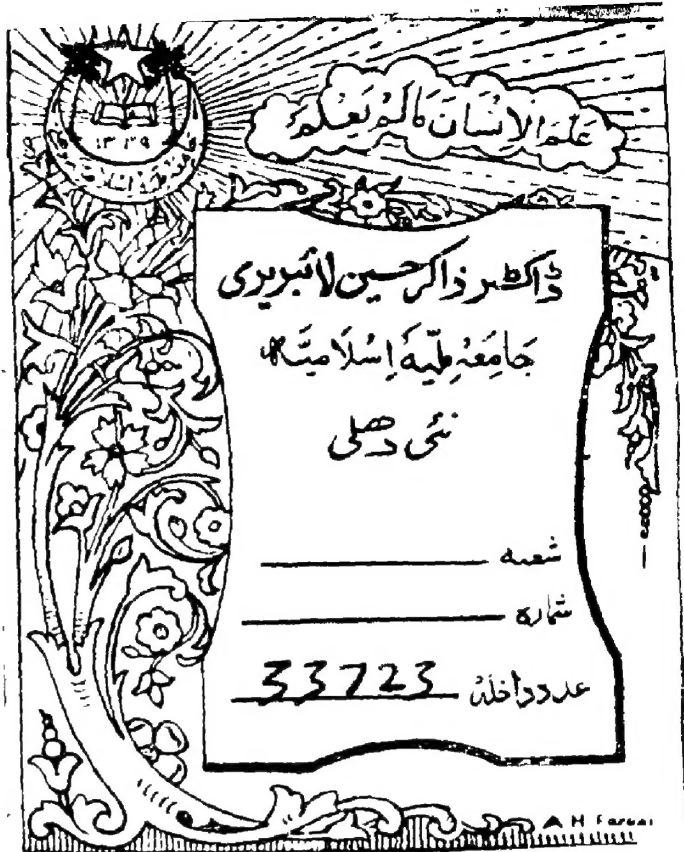 عَلَّمَ الْاِنْسَانَ مَا لَمْ يَعْلَمْ
١٣٣٩
ڈاکٹر ذاکر حسین لائبریری
جَامِعَہ مِلّیَہ اِسْلَامِیَّہ
نئی دھلی
شعبہ
شمارہ
عدد داخلہ 33723
A H Faruqi